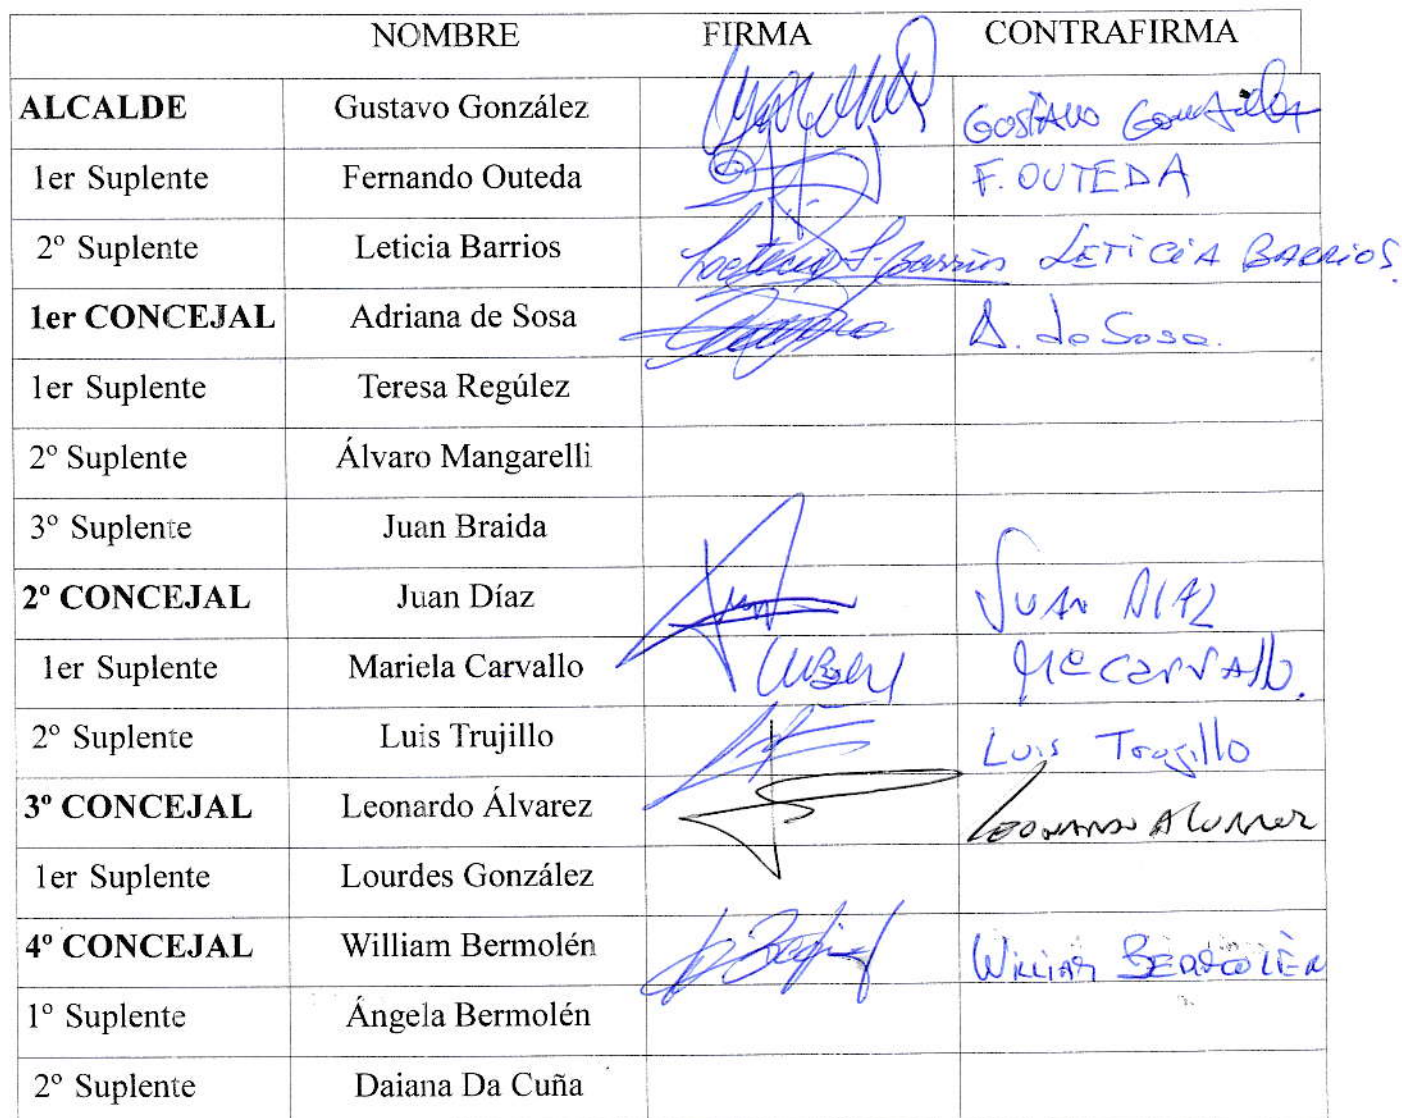 NOMBRE FIRMA CONTRAFIRMA
ALCALDE Gustavo González GOSTAVO González
1er Suplente Fernando Outeda F. OUTEDA
2º Suplente Leticia Barrios Leticia S. Barrios LETICIA BARRIOS.
1er CONCEJAL Adriana de Sosa A. de Sosa.
1er Suplente Teresa Regúlez
2º Suplente Álvaro Mangarelli
3º Suplente Juan Braida
2º CONCEJAL Juan Díaz JUAN DIAZ
1er Suplente Mariela Carvallo Me Carvallo.
2º Suplente Luis Trujillo Luis Trujillo
3º CONCEJAL Leonardo Álvarez LEONARDO ALVAREZ
1er Suplente Lourdes González
4º CONCEJAL William Bermolén WILLIAM BERMOLÉN
1º Suplente Ángela Bermolén
2º Suplente Daiana Da Cuña